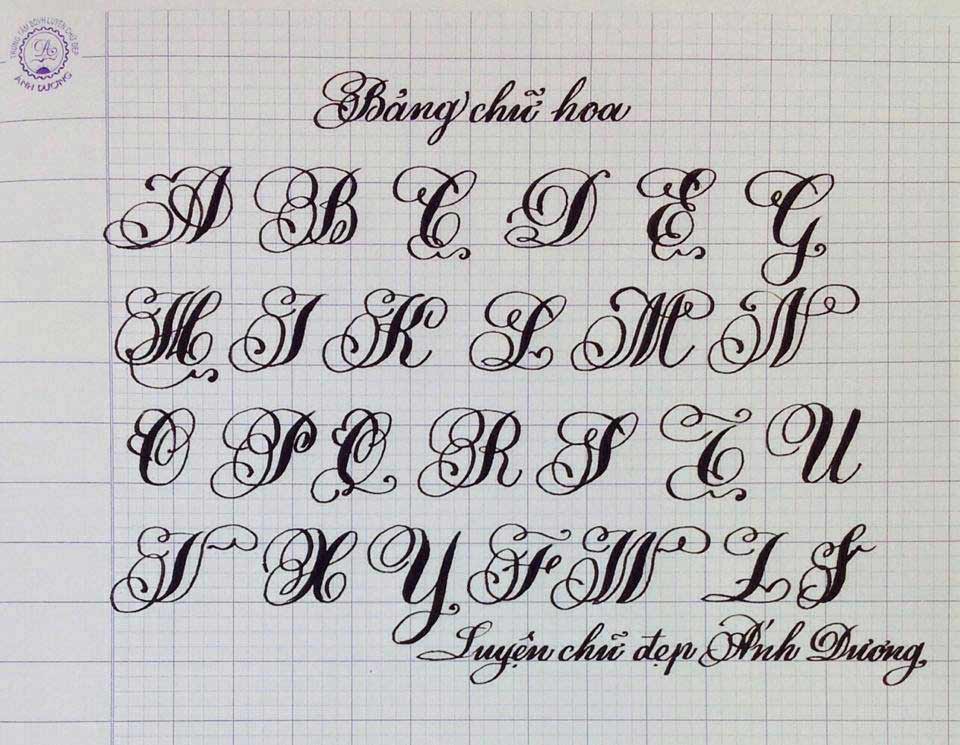 TRUNG TÂM BDVH LUYỆN CHỮ ĐẸP
ÁNH DƯƠNG
Bảng chữ hoa
A B C D E G
H I K L M N
O P Q R S T U
V X Y F W Z J
Luyện chữ đẹp Ánh Dương